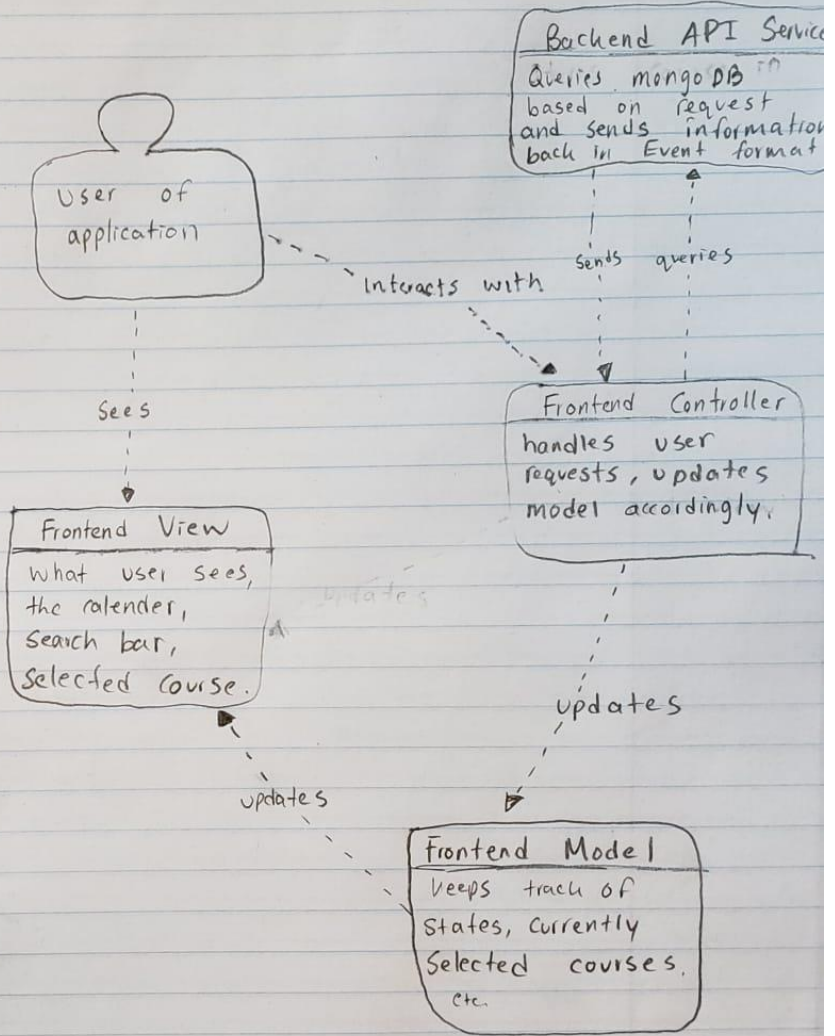 Backend API Service
Queries mongoDB in
based on request
and sends information
back in Event format
User of
application
Interacts with
Sends
queries
Sees
Frontend Controller
handles user
requests, updates
model accordingly.
Frontend View
What user sees,
the calender,
Search bar,
Selected course.
updates
updates
updates
Frontend Model
keeps track of
States, currently
Selected courses,
etc.